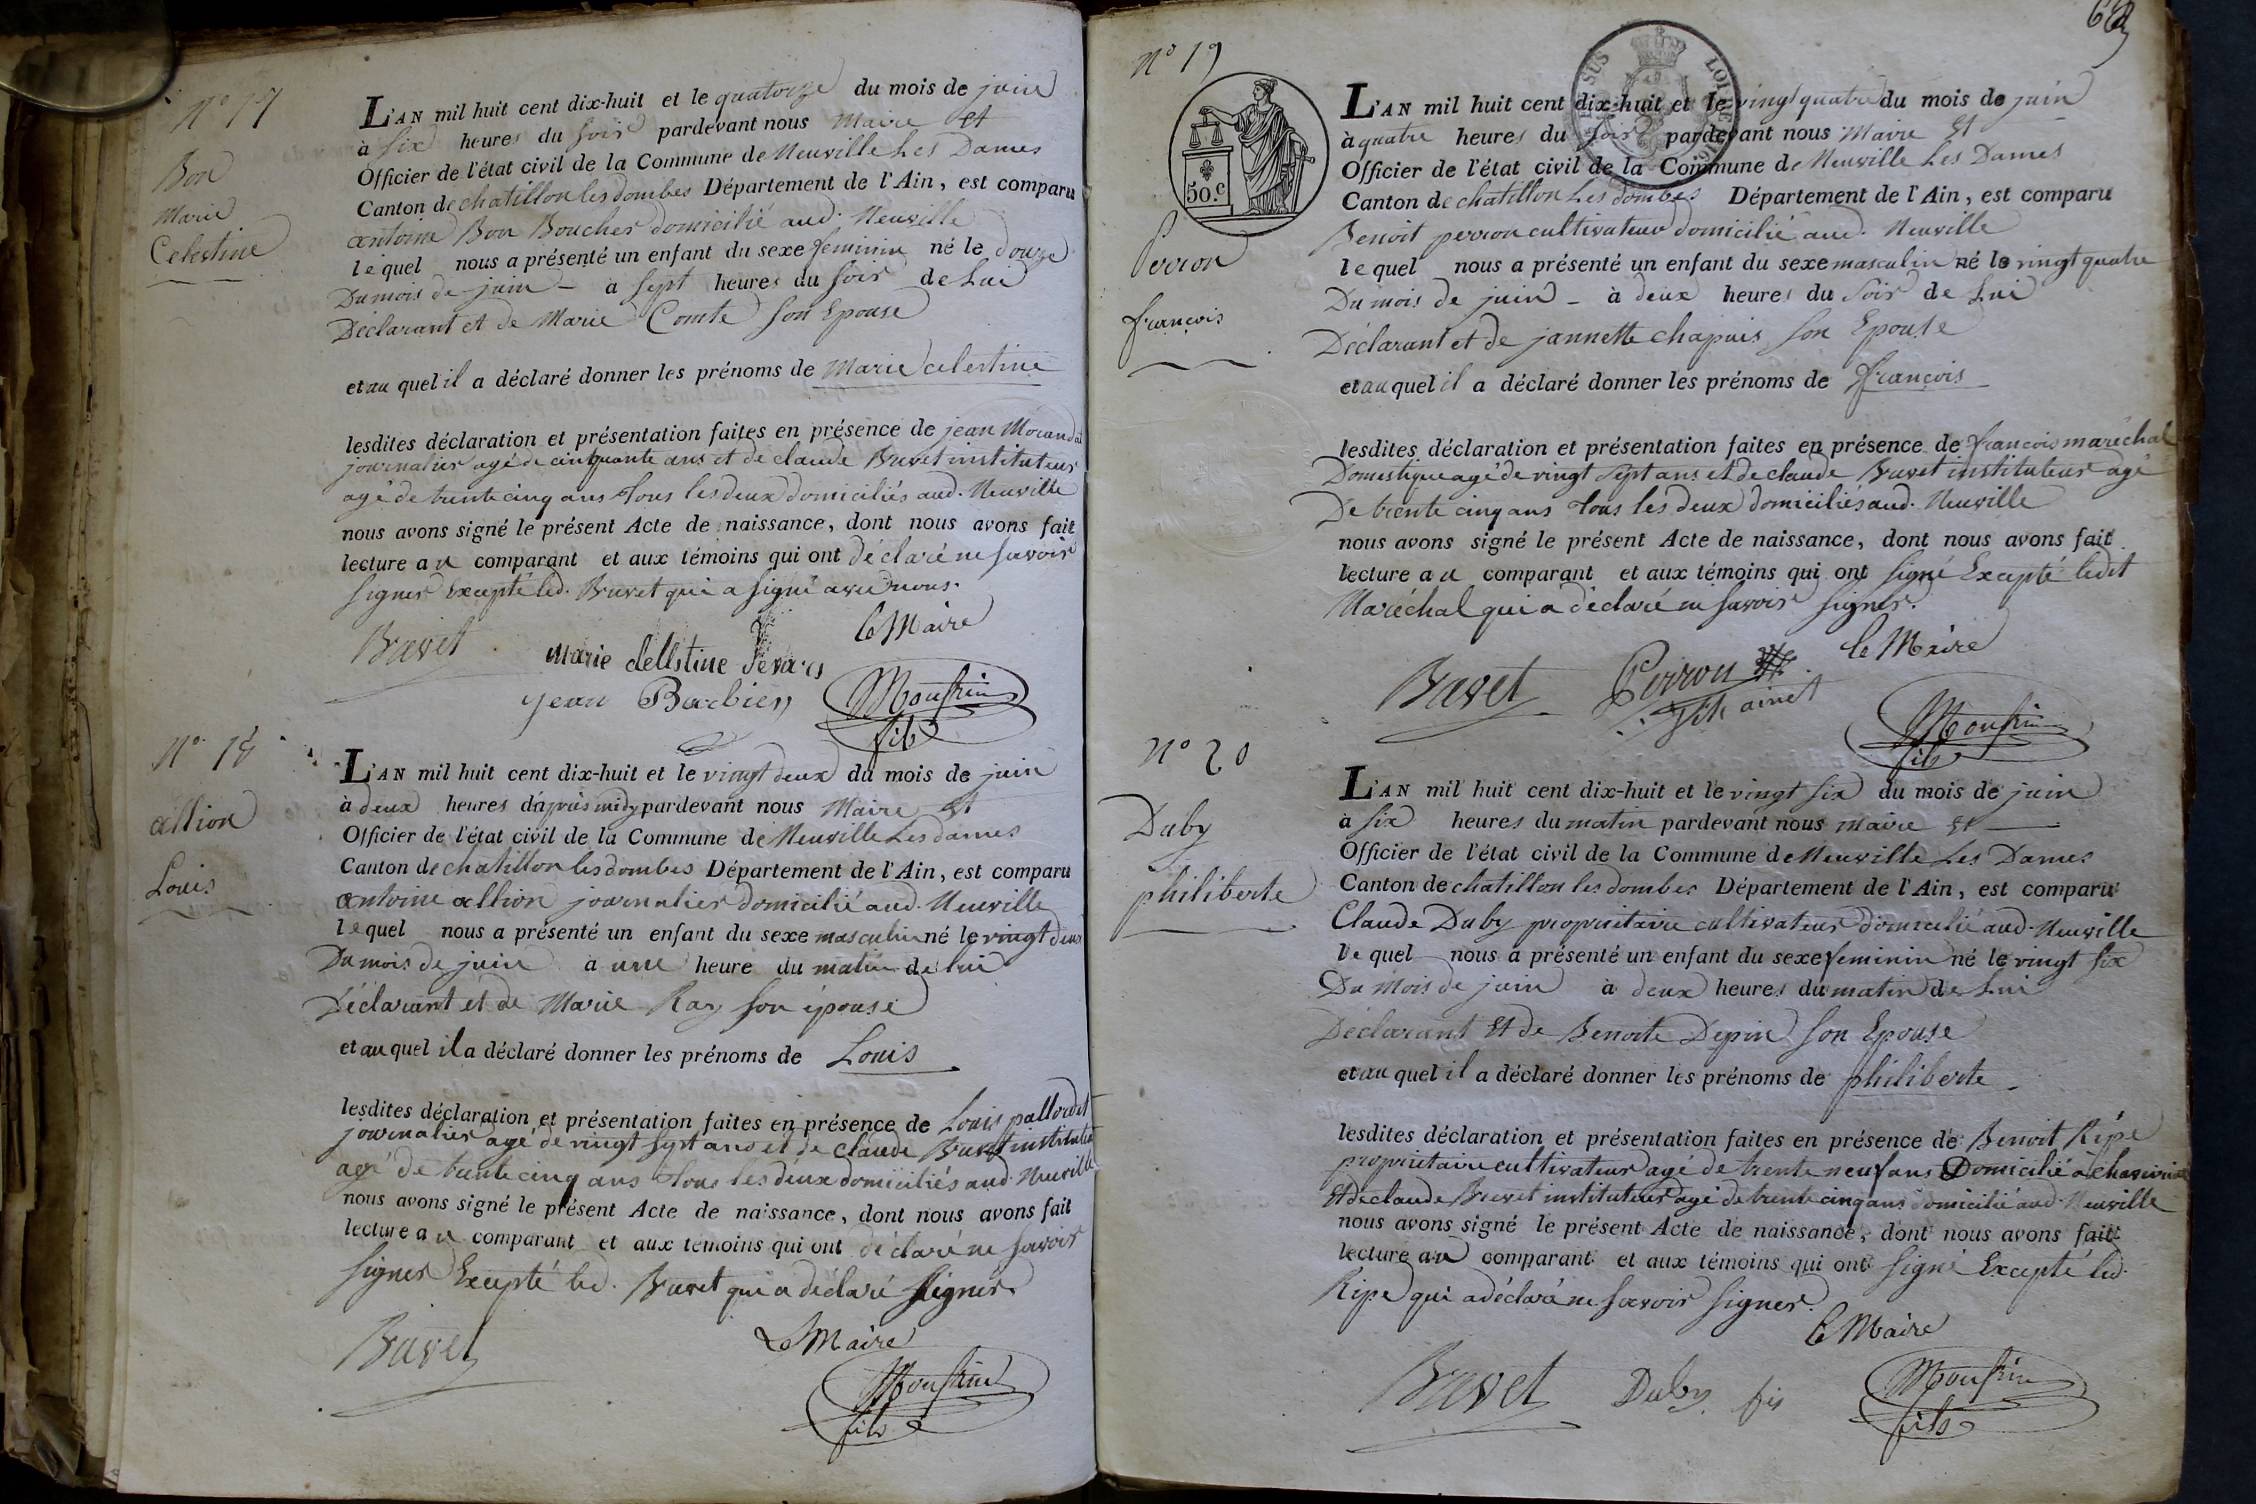 N° 17
Bon
Marie
Celestine
L'AN mil huit cent dix-huit et le quatorze du mois de juin
à six heures du soir pardevant nous Maire et
Officier de l'état civil de la Commune de Neuville Les Dames
Canton de chatillon les dombes Département de l'Ain, est comparu
antoine Bon Boucher domicilié aud. Neuville
lequel nous a présenté un enfant du sexe feminin né le douze
Du mois de juin - à sept heures du soir de Lui
Déclarant et de Marie Comte son Epouse
et au quel il a déclaré donner les prénoms de Marie celestine
lesdites déclaration et présentation faites en présence de jean Morandat
journalier agé de cinquante ans et de claude Buvet instituteur
agé de trente cinq ans tous les deux domiciliés aud. Neuville
nous avons signé le présent Acte de naissance, dont nous avons fait
lecture au comparant et aux témoins qui ont déclaré ne savoir
signer Excepté led. Buvet qui a signé avec nous.
Buvet
Le Maire
Marie Cellstine
Jean Barbier
Monfrin
fils
N° 18
allion
Louis
L'AN mil huit cent dix-huit et le vingt deux du mois de juin
à deux heures d'après midy pardevant nous Maire et
Officier de l'état civil de la Commune de Neuville Les dames
Canton de chatillon les dombes Département de l'Ain, est comparu
antoine allion journalier domicilié aud. Neuville
lequel nous a présenté un enfant du sexe masculin né le vingt deux
Du mois de juin à une heure du matin de lui
Déclarant et de Marie Ray son épouse
et au quel il a déclaré donner les prénoms de Louis
lesdites déclaration et présentation faites en présence de Louis pallordet
journalier agé de vingt sept ans et de claude Buvet instituteur
agé de trente cinq ans tous les deux domiciliés aud. Neuville
nous avons signé le présent Acte de naissance, dont nous avons fait
lecture au comparant et aux témoins qui ont déclaré ne savoir
signer Excepté led. Buvet qui a déclaré signer.
Buvet
Le Maire
Monfrin
fils
N° 19
50.c
Perron
françois
L'AN mil huit cent dix-huit et le vingt quatre du mois de juin
à quatre heures du soir pardevant nous Maire et
Officier de l'état civil de la Commune de Neuville Les Dames
Canton de chatillon Les dombes Département de l'Ain, est comparu
Benoit perron cultivateur domicilié aud. Neuville
lequel nous a présenté un enfant du sexe masculin né le vingt quatre
Du mois de juin - à deux heures du soir de Lui
Déclarant et de jannette chapuis son Epouse
et au quel il a déclaré donner les prénoms de françois
lesdites déclaration et présentation faites en présence de francois maréchal
Domestique agé de vingt sept ans et de claude Buvet instituteur agé
De trente cinq ans tous les deux domiciliés aud. Neuville
nous avons signé le présent Acte de naissance, dont nous avons fait
lecture au comparant et aux témoins qui ont signé Excepté ledit
Maréchal qui a déclaré ne savoir signer.
Buvet
Perron
ainet
le Maire
Monfrin
fils
N° 20
Duby
philiberte
L'AN mil huit cent dix-huit et le vingt six du mois de juin
à six heures du matin pardevant nous maire et
Officier de l'état civil de la Commune de Neuville Les Dames
Canton de chatillon les dombes Département de l'Ain, est comparu
Claude Duby proprietaire cultivateur domicilié aud. Neuville
lequel nous a présenté un enfant du sexe feminin né le vingt six
Du Mois de juin à deux heures du matin de Lui
Déclarant Et de Benoite Depin son Epouse
et au quel il a déclaré donner les prénoms de philiberte
lesdites déclaration et présentation faites en présence de Benoit Ripe
proprietaire cultivateur agé de trente neuf ans Domicilié à
Et de claude Buvet instituteur agé de trente cinq ans domicilié aud. Neuville
nous avons signé le présent Acte de naissance, dont nous avons fait
lecture au comparant et aux témoins qui ont signé Excepté led.
Ripe qui a déclaré ne savoir signer.
Le Maire
Buvet
Duby fis
Monfrin
fils